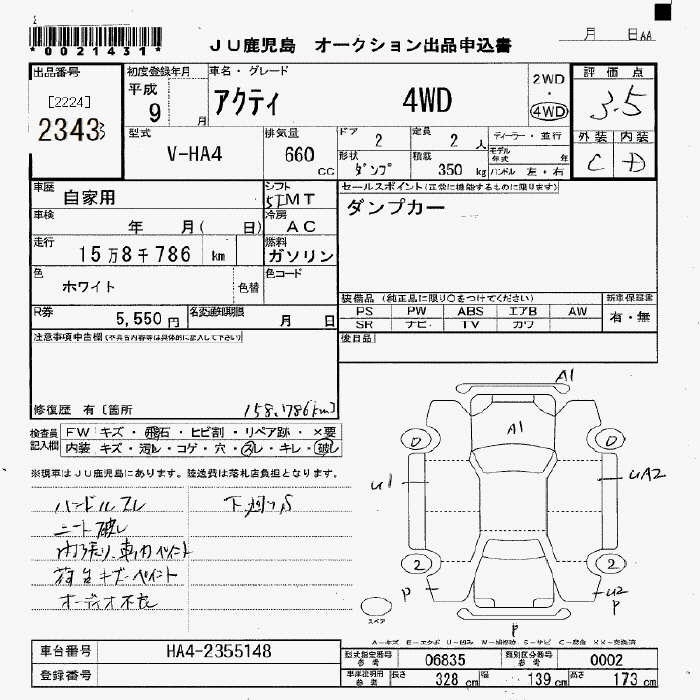 *0021431*
JU鹿児島 オークション出品申込書
月 日AA
出品番号
[2224]
2343
初度登録年月
平成
9 月
車名・グレード
アクティ 4WD
2WD
・
4WD
評価点
3.5
外装 内装
C D
型式
V-HA4
排気量
660 cc
ドア
2
定員
2 人
ディーラー・並行
形状
ダンプ
積載
350 kg
モデル年式 年
ハンドル 左・右
車歴
自家用
シフト
5 MT
車検
年 月( 日)
冷房
AC
走行
15万8千786 km
燃料
ガソリン
色
ホワイト
色替
色コード
R券
5,550 円
名変通知期限
月 日
セールスポイント(正常に機能するものに限ります)
ダンプカー
装備品 (純正品に限り○をつけてください)
PS PW ABS エアB AW
SR ナビ TV カワ
新車保証書
有・無
後日品
注意事項申告欄(不具合内容等は具体的に記入して下さい)
修復歴 有〔箇所
158,786km〕
検査員記入欄
FW キズ・飛石・ヒビ割・リペア跡・×要
内装 キズ・汚レ・コゲ・穴・スレ・キレ・破レ
※現車はJU鹿児島にあります。陸送費は落札店負担となります。
ハンドルスレ
シート破レ
荷台キズ・ペイント
オーディオ不良
A1
A1
0
0
U1
UA2
2
2
P
U2
P
P
スペア
車台番号
HA4-2355148
登録番号
型式指定番号
参考
06835
類別区分番号
参考
0002
車庫証明用
参考
長さ
328 cm
幅
139 cm
高さ
173 cm